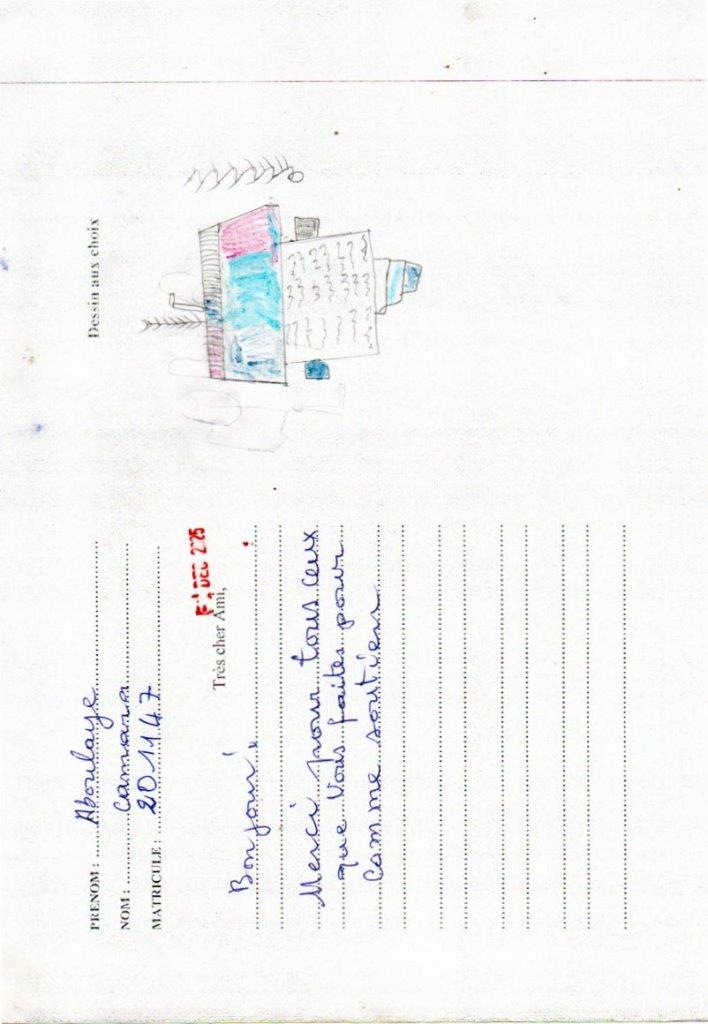 PRENOM : Aboulaye
NOM : Camara
MATRICULE : 201147
DEC
Très cher Ami,
Bonjour
Merci pour tous ceux
que Vous faites pour
Comme soutiens
Dessin aux choix